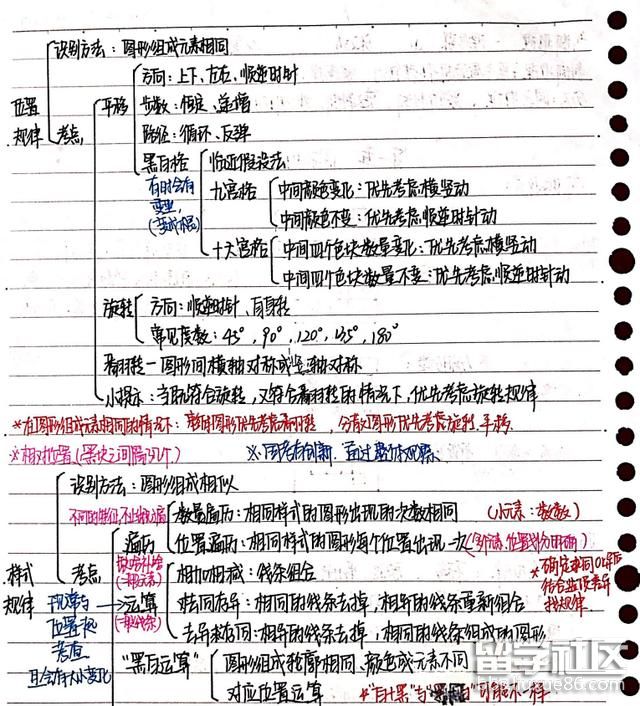 识别方法：图形组成元素相同
位置规律
考点
平移
方向：上下、左右、顺逆时针
步数：恒定、递增
路径：循环、反弹
黑白格
就近假设法
有时会有
九宫格
中间颜色变化：优先考虑横竖动
中间颜色不变：优先考虑顺逆时针动
十六宫格
中间四个色块数量变化：优先考虑横竖动
中间四个色块数量不变：优先考虑顺逆时针动
旋转
方向：顺逆时针、自身转
常见度数：45°，90°，120°，135°，180°
翻转－图形间横轴对称或竖轴对称
小提示：当既符合旋转，又符合翻转的情况下，优先考虑旋转规律
*在图形组成元素相同的情况下：图形优先考虑翻转，分散图形优先考虑旋转、平移
*相对位置（黑块之间隔几个）
识别方法：图形组成相似
样式规律
考点
遍历
数量遍历：相同样式的图形出现的次数相同
（小元素：数数）
位置遍历：相同样式的图形每个位置出现一次
运算
相加相减：线条组合
去同存异：相同的线条去掉，相异的线条重新组合
去异存同：相异的线条去掉，相同的线条组成的图形
找规律
位置
考查
且会有大小变化
"黑白运算"
图形组成轮廓相同、颜色或元素不同
对应位置运算
*"白+黑"与"黑+白"可能不一样
留学社区
liuxue86.com